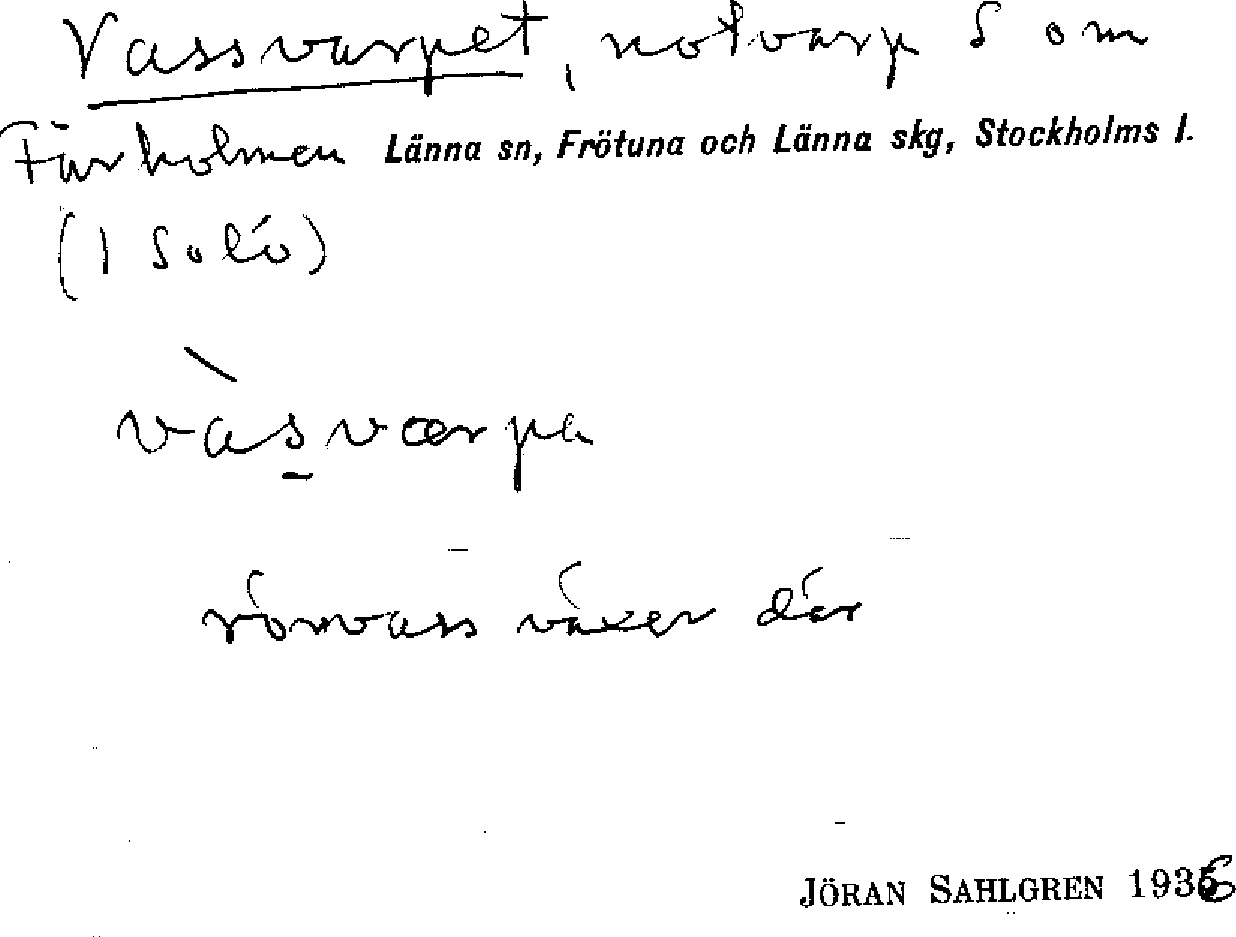 Vassvarpet, notvarp S om
Fårholmen Länna sn, Frötuna och Länna skg, Stockholms l.
(1 Solö)
vàsværpa
rörvass växer där
JÖRAN SAHLGREN 1936